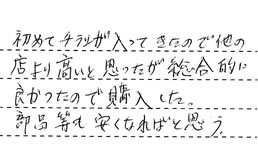 初めてチラシが入ってきたので他の
店より高いと思ったが総合的に
良かったので購入した。
部品等も安くなればと思う。